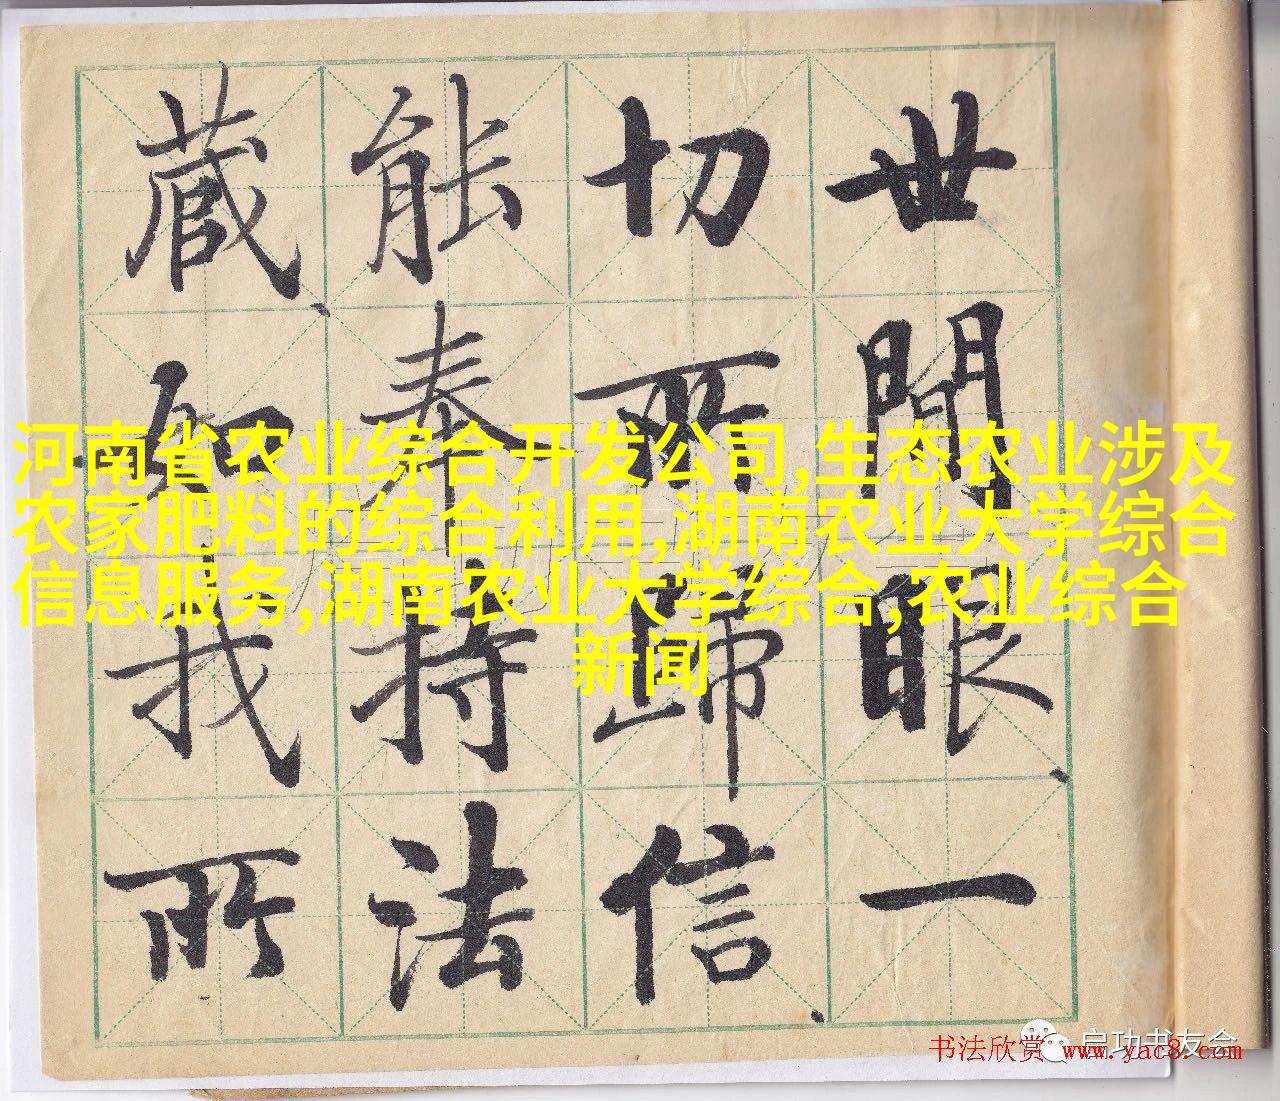 世間眼一
切所歸信
能奉持法
藏如我所
河南省农业综合开发公司,生态农业涉及
农家肥料的综合利用,湖南农业大学综合
信息服务,湖南农业大学综合,农业综合
新闻
启功书友会
书法欣赏 www.yac8.com